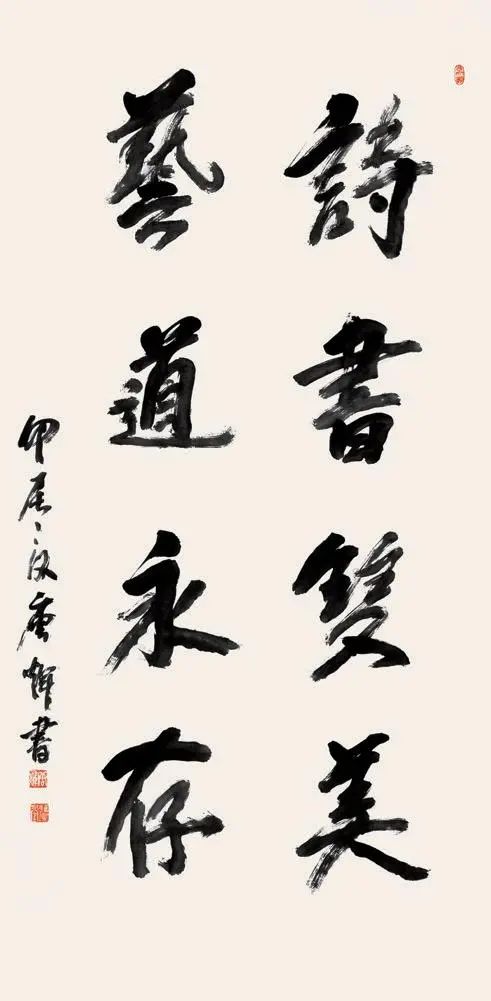 詩書雙美
藝道永存
甲辰之 唐輝書